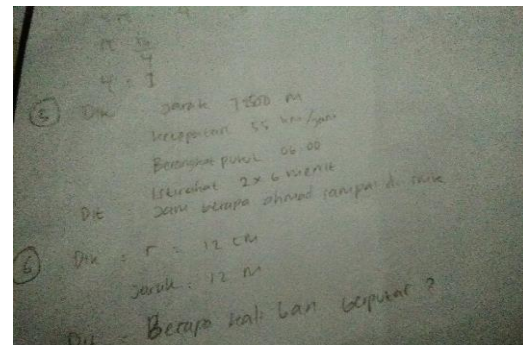 4 = 1
5 Dik Jarak 78500 m
kecepatan 55 km/jam
Berangkat pukul 06.00
Istirahat 2 x 6 menit
Dit Jam berapa ahmad sampai di
6 Dik : r = 12 cm
Jarak : 12 m
Dit : Berapa kali ban berputar ?